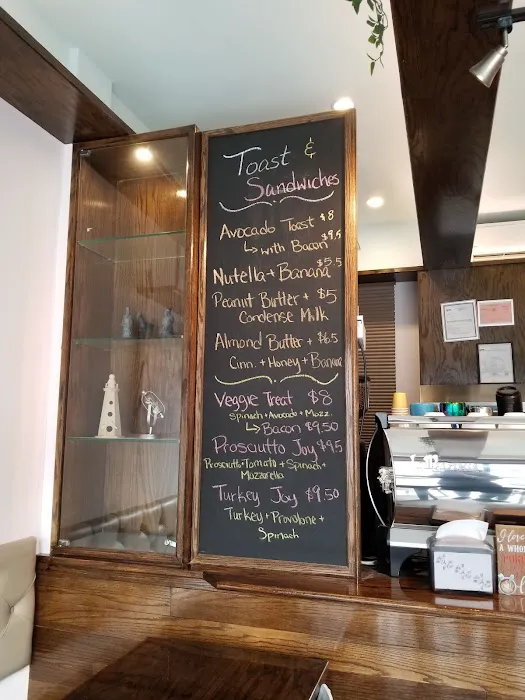 Toast &
Sandwiches
Avocado Toast $8
with Bacon $9.5
Nutella + Banana $5.5
Peanut Butter + $5
Condense Milk
Almond Butter + $6.5
Cinn. + Honey + Banana
Veggie Treat $8
Spinach + Avocado + Mozz.
Bacon $9.50
Prosciutto Joy $9.5
Prosciutto + Tomato + Spinach +
Mozzarella
Turkey Joy $9.50
Turkey + Provolone +
Spinach
A WHO